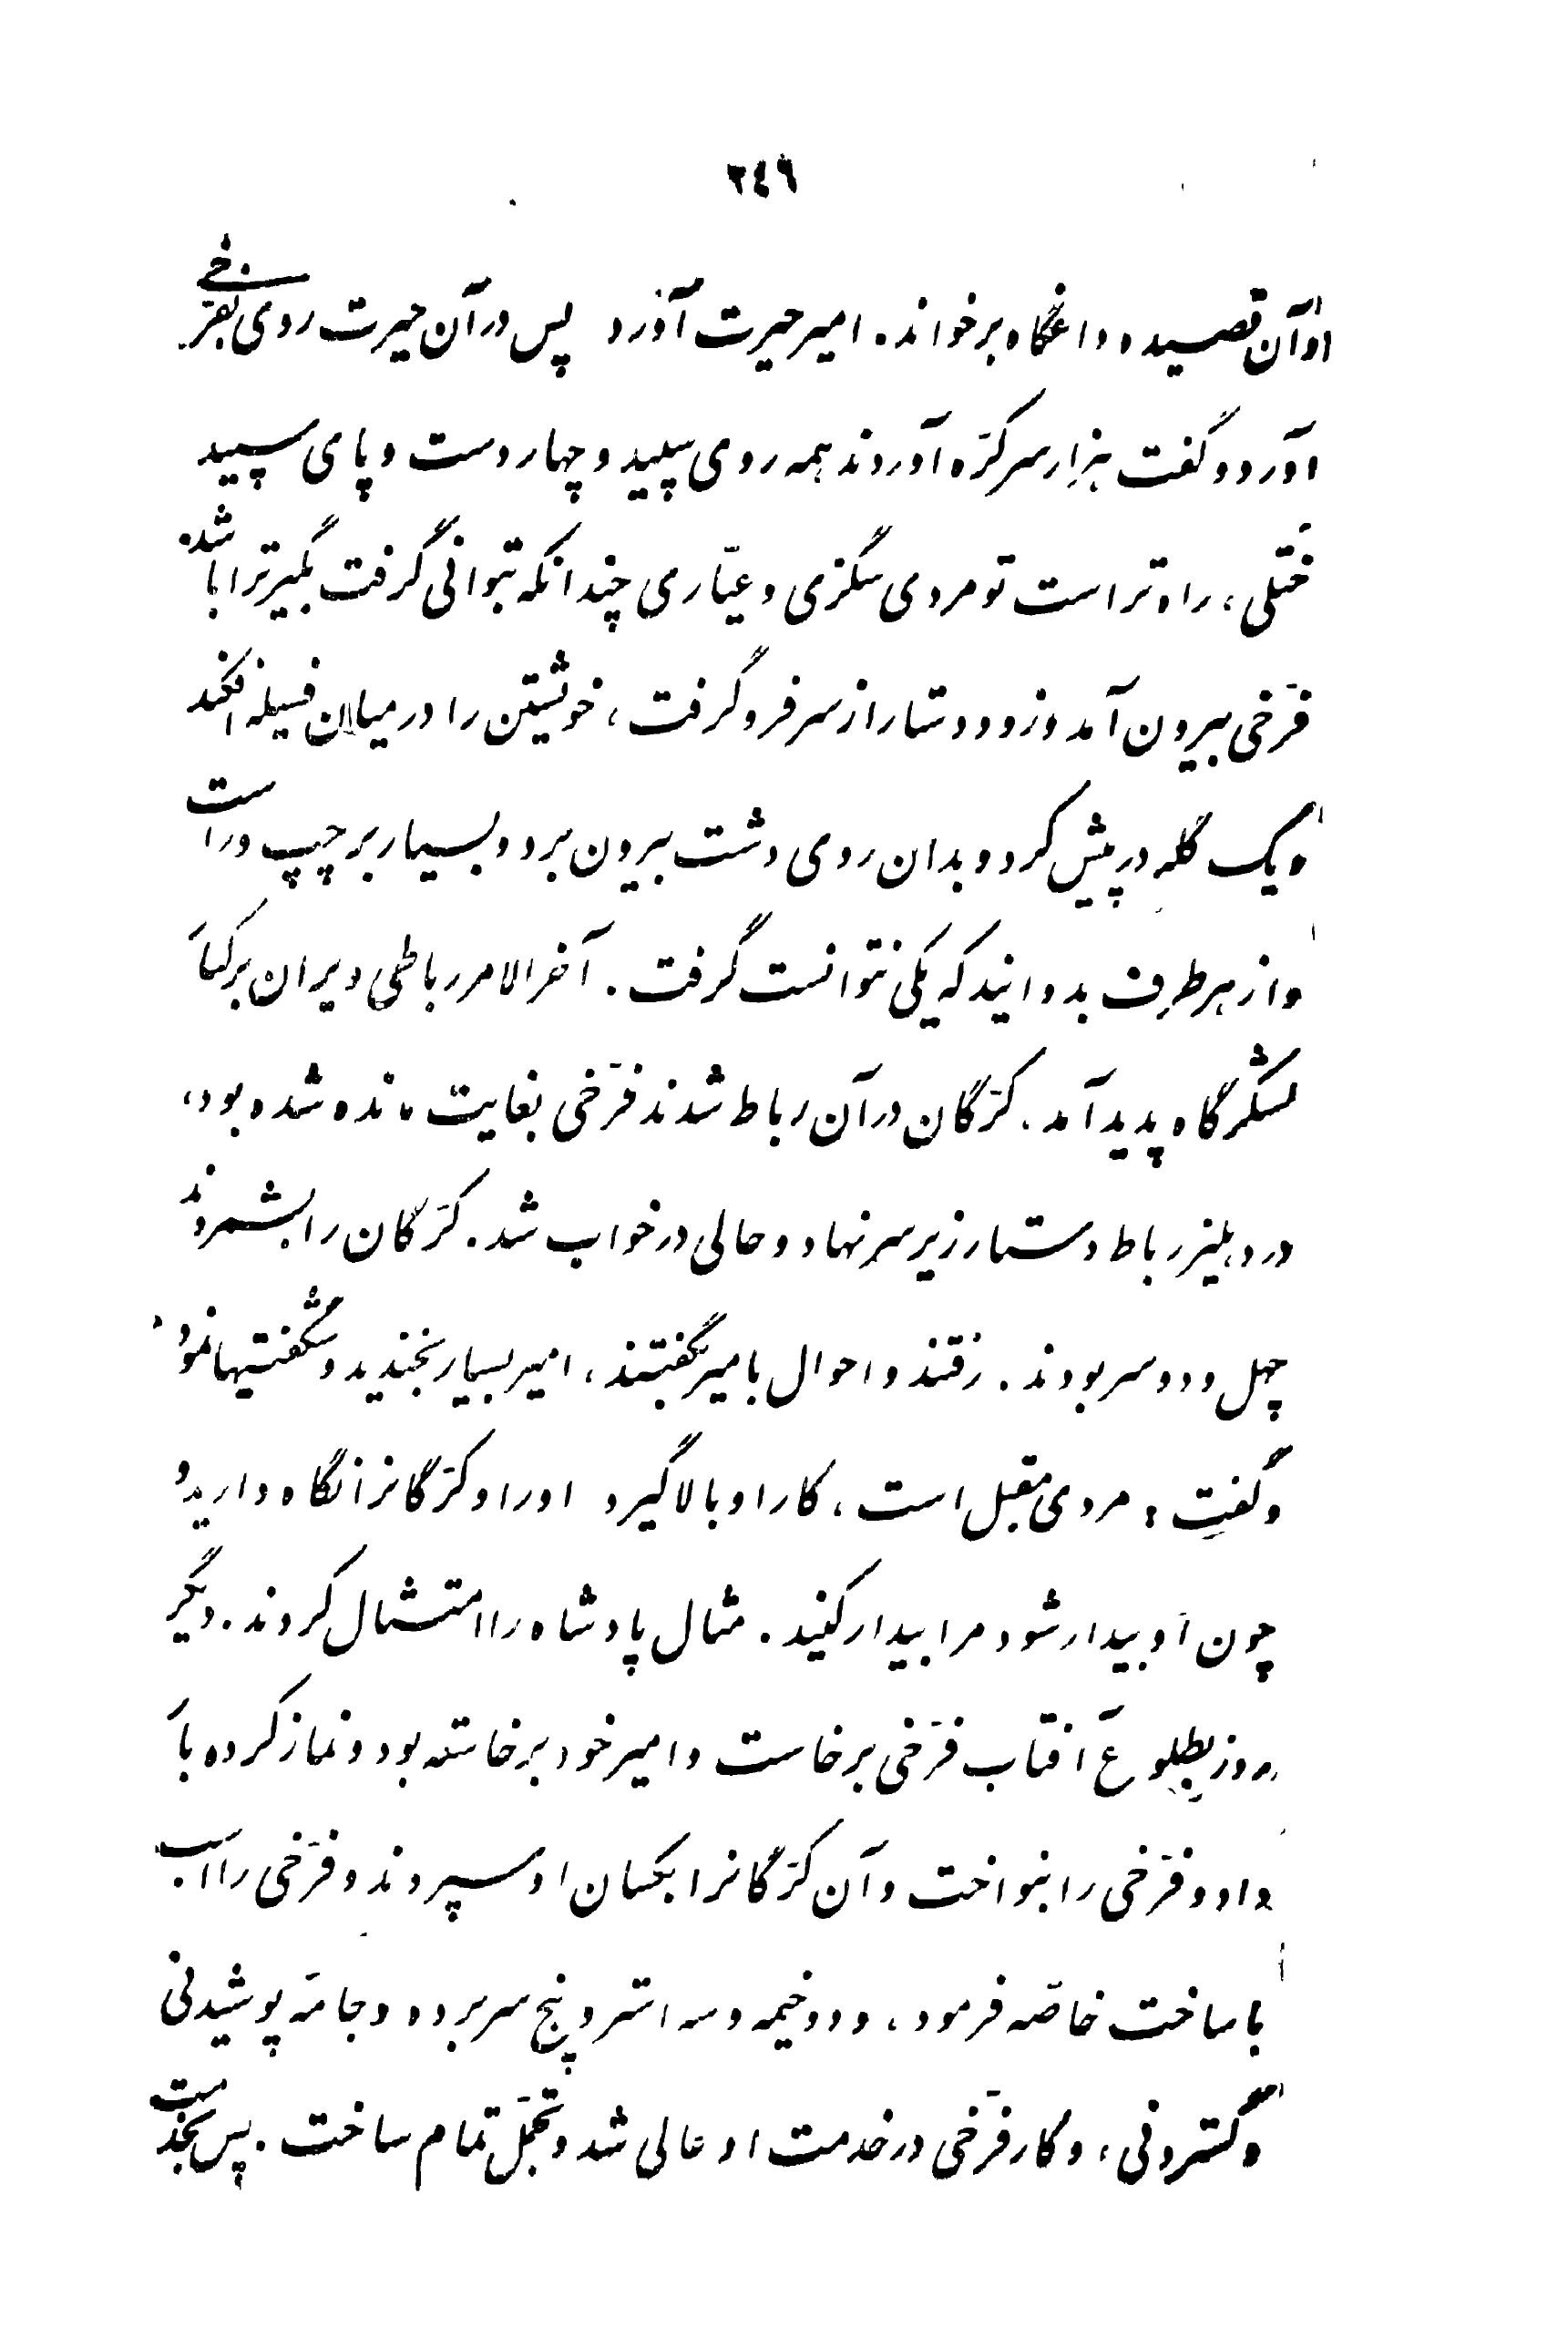 ٢٤٩
او آن قصیده داغگاه برخواند. امیر حیرت آورد پس در آن حیرت روی بفرّخی
آورد و گفت هزار سر کرّه آوردند همه روی سپید و چهار دست و پای سپید
ختلی، راه تراست تو مردی سگزی و عیّاری چندانکه بتوانی گرفت بگیر ترا باشد.
فرّخی بیرون آمد و زود دستار از سر فرو گرفت، خویشتن را در میان فسیله افکند
و یک گله در پیش کرد و بدان روی دشت بیرون برد و بسیار بر چپ و راست
و از هر طرف بدوانید که یکی نتوانست گرفت. آخرالامر رباطی ویران بر کنار
لشکرگاه پدید آمد. کرّگان در آن رباط شدند فرّخی بغایت مانده شده بود،
در دهلیز رباط دستار زیر سر نهاد و حالی در خواب شد. کرّگان را بشمردند
چهل و دو سر بودند. رفتند و احوال بامیر بگفتند، امیر بسیار بخندید و شگفتیها نمود
و گفت: مردی مقبل است، کار او بالا گیرد او را و کرّگانرا نگاه دارید و
چون او بیدار شود مرا بیدار کنید. مثال پادشاه را امتثال کردند. دیگر
روز بطلوع آفتاب فرّخی برخاست و امیر خود برخاسته بود و نماز کرده بار
داد و فرّخی را بنواخت و آن کرّگانرا بکسان او سپردند و فرّخی را اسب
با ساخت خاصّه فرمود، و دو خیمه و سه استر و پنج سر برده و جامه پوشیدنی
و گستردنی، و کار فرّخی در خدمت او عالی شد و تجمّل تمام ساخت. پس بخدمت